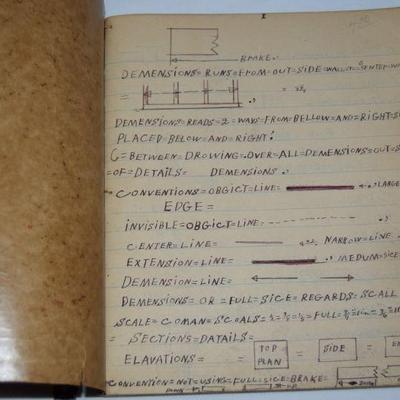 BRAKE.
DEMENSIONS=RUNS=FROM=OUT=SIDE=WALL=CENTER=
DEMENSIONS=READS=2=WAYS=FROM=BELLOW=AND=RIGHT=
PLACED=BELOW=AND=RIGHT:
6=BETWEEN=DROWING=OVER=ALL=DEMENSIONS=OUT=
=OF=DETAILS= DEMENSIONS.,
=CONVENTIONS=OBGICT=LINE= =LARGE
EDGE=
INVISIBLE=OBGICT=LINE=
CENTER=LINE= NARROW=LINE.
EXTENSION=LINE= =MEDUM=SICE
DEMENSION=LINE=
DEMENSIONS=OR=FULL=SICE=REGARDS=SCALL
SCALE=COMAN=SCOALS= FULL=
=SECTIONS=DATAILS=
ELAVATIONS= = TOP= PLAN = SIDE =
CONVENTION=NOT=USING=FULL=SICE=BRAKE=